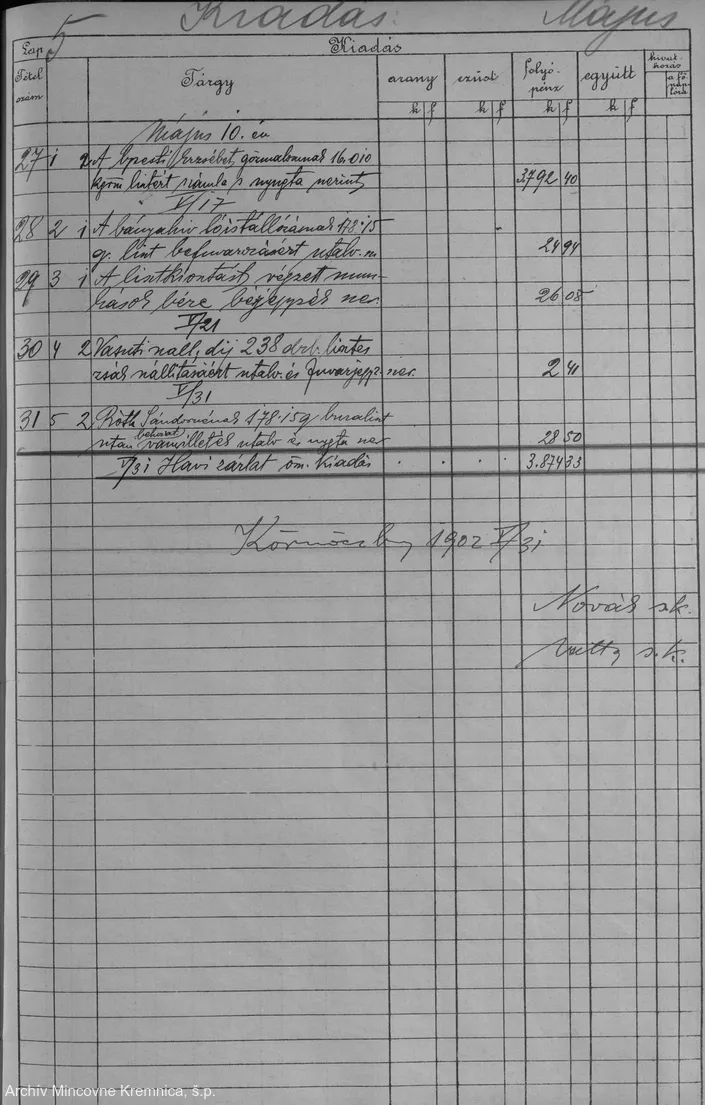 Kiadás. Május
Lap 5 Kiadás
Tétel szám Tárgy arany ezüst folyó-pénz együtt hivat-kozás a fő-naplóra
k f k f k f k f
Május 10. én
27 1 2 A bpesti Erzsébet gőzmalomnak 16.010
kgm lisztért számla s nyugta szerint 3.792 40
V/17
28 2 1 A bányahiv lóistállózásnak 178.15
q. liszt befuvarozásért utalv. sz. 24 94
29 3 1 A lisztkiontást végzett mun-
kások bére bérjegyzék sz. 26 08
V/21
30 4 2 Vasuti száll. dij 238 drb. lisztes
zsák szállitásáért utalv. és fuvarjegyz. sz. 2 41
V/31
31 5 2 Róth Sándornénak 178.15 q buzaliszt
után behozat vámilleték utalv és nyugta sz 28 50
V/31 Havi zárlat öss. kiadás . . . . 3.874 33
Körmöczbny 1902 V/31
Novák sk.
s.k.
Archív Mincovne Kremnica, š.p.